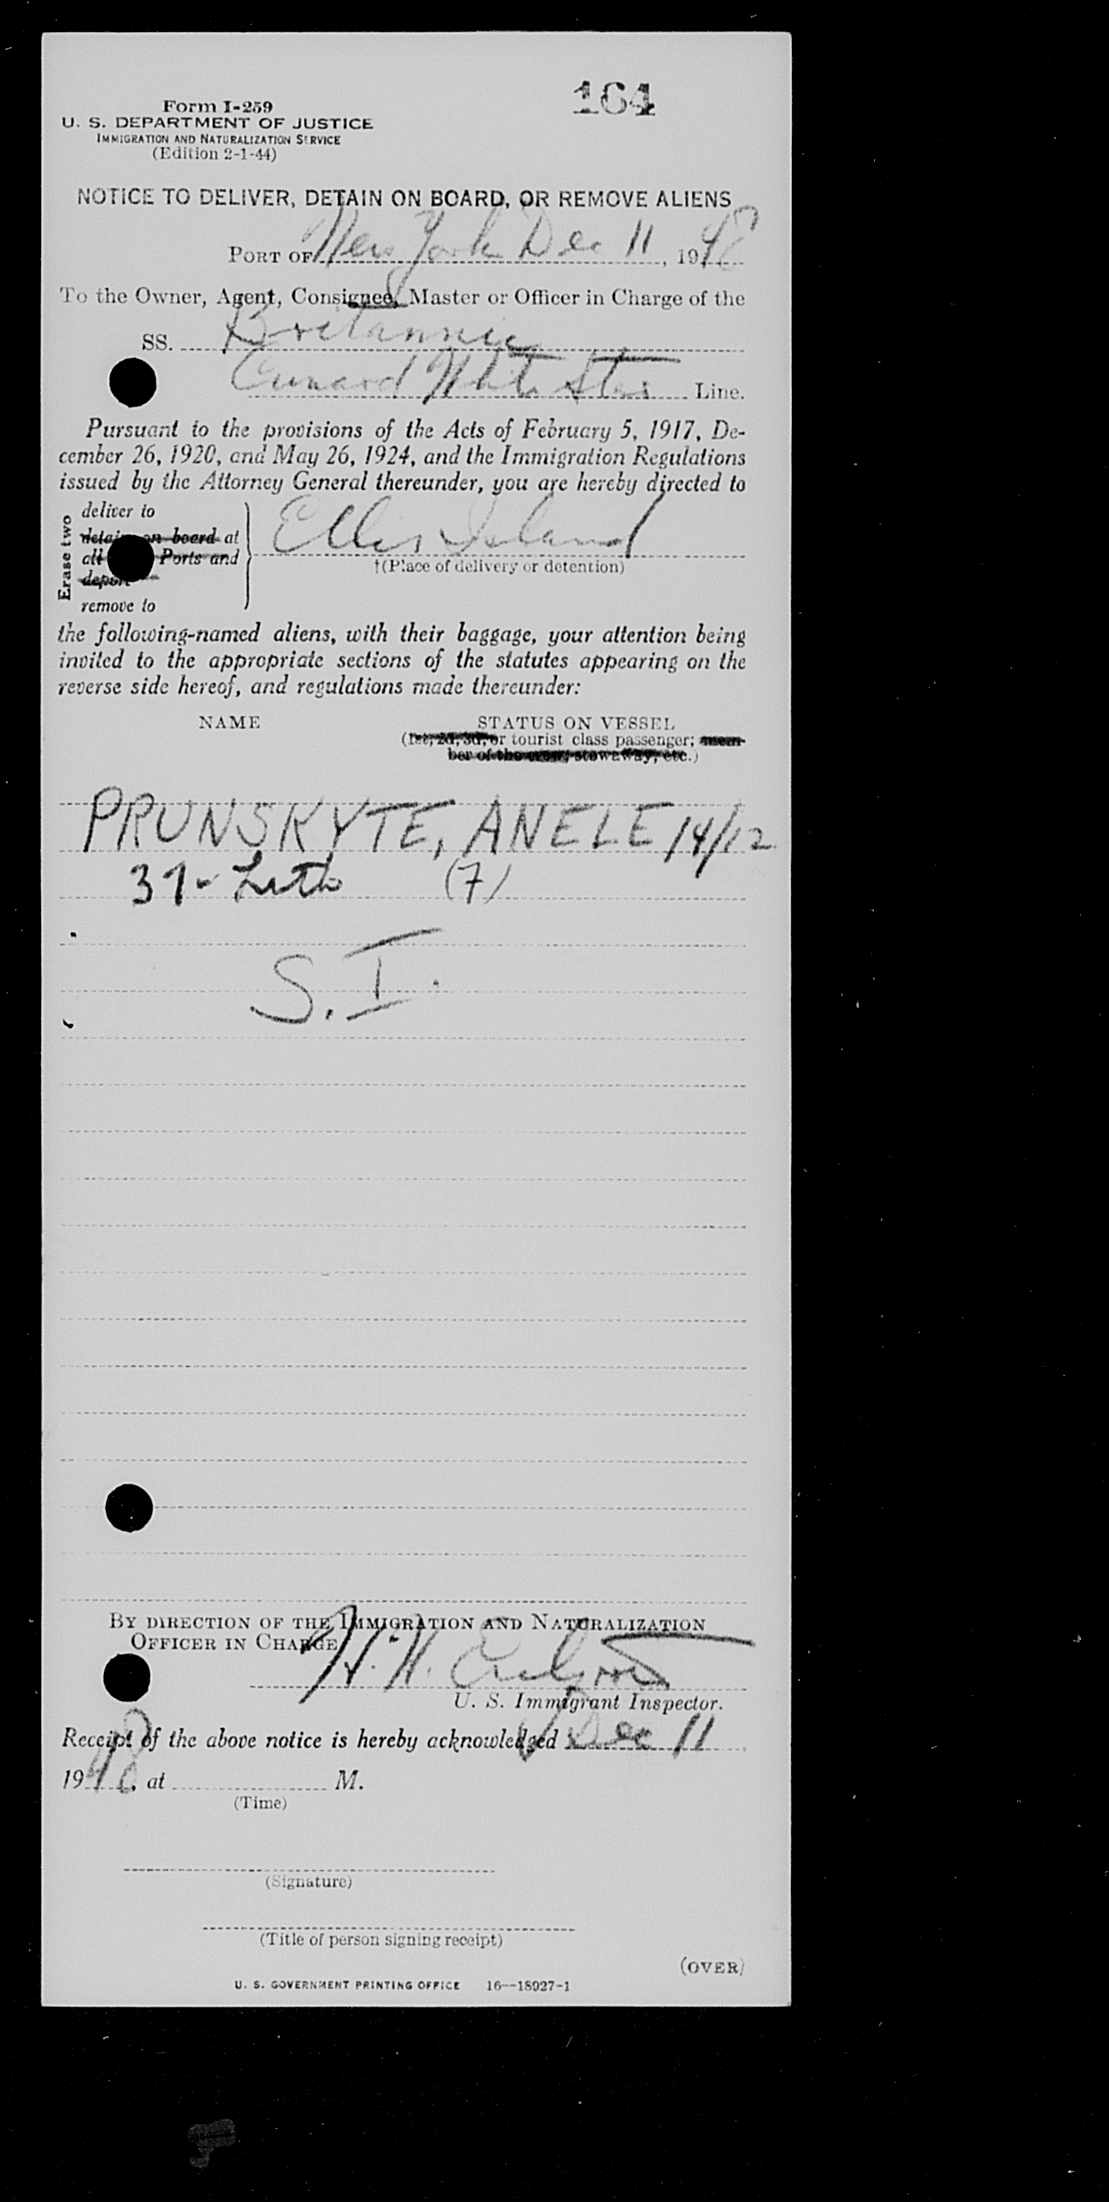 164
Form I-259
U. S. DEPARTMENT OF JUSTICE
IMMIGRATION AND NATURALIZATION SERVICE
(Edition 2-1-44)
NOTICE TO DELIVER, DETAIN ON BOARD, OR REMOVE ALIENS
PORT OF New York Dec 11, 1948
To the Owner, Agent, Consignee, Master or Officer in Charge of the
SS. Britannic
Cunard White Star Line.
Pursuant to the provisions of the Acts of February 5, 1917, De-
cember 26, 1920, and May 26, 1924, and the Immigration Regulations
issued by the Attorney General thereunder, you are hereby directed to
Erase two
deliver to
detain on board at
all Ports and
deport
remove to
Ellis Island
†(Place of delivery or detention)
the following-named aliens, with their baggage, your attention being
invited to the appropriate sections of the statutes appearing on the
reverse side hereof, and regulations made thereunder:
NAME STATUS ON VESSEL
(1st, 2d, 3d, or tourist class passenger; mem-
ber of the crew, stowaway, etc.)
PRUNSKYTE, ANELE 14/12
37- Lith (7)
S. I.
BY DIRECTION OF THE IMMIGRATION AND NATURALIZATION
OFFICER IN CHARGE
H. H.
U. S. Immigrant Inspector.
Receipt of the above notice is hereby acknowledged Dec 11
1948, at M.
(Time)
(Signature)
(Title of person signing receipt)
(OVER)
U. S. GOVERNMENT PRINTING OFFICE 16—18027-1